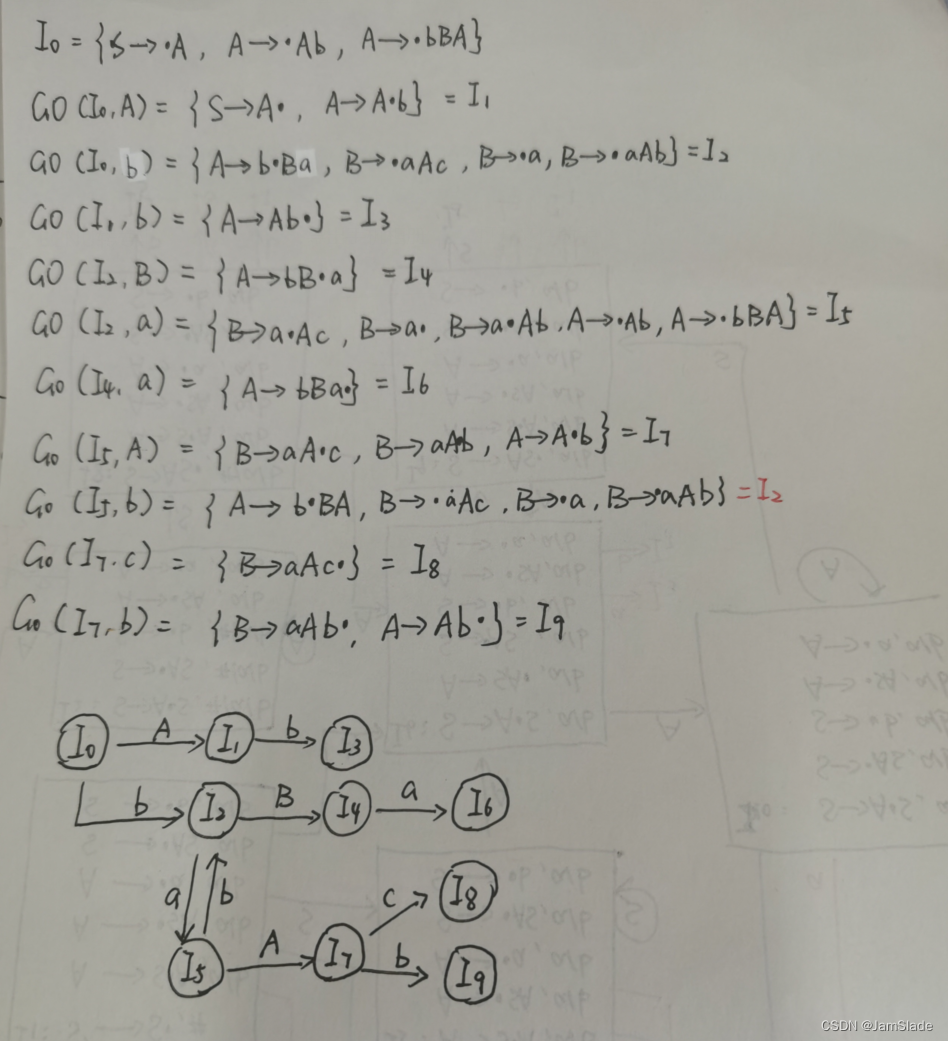 I₀ = {S→·A, A→·Ab, A→·bBA}
GO(I₀,A) = {S→A·, A→A·b} = I₁
GO(I₀,b) = {A→b·Ba, B→·aAc, B→·a, B→·aAb} = I₂
GO(I₁,b) = {A→Ab·} = I₃
GO(I₂,B) = {A→bB·a} = I₄
GO(I₂,a) = {B→a·Ac, B→a·, B→a·Ab, A→·Ab, A→·bBA} = I₅
Go(I₄,a) = {A→bBa·} = I₆
Go(I₅,A) = {B→aA·c, B→aA·b, A→A·b} = I₇
Go(I₅,b) = {A→b·BA, B→·aAc, B→·a, B→·aAb} = I₂
Go(I₇.c) = {B→aAc·} = I₈
Go(I₇,b) = {B→aAb·, A→Ab·} = I₉
I₀ A I₁ b I₃
b I₂ B I₄ a I₆
a b c I₈
I₅ A I₇ b I₉
CSDN @JamSlade